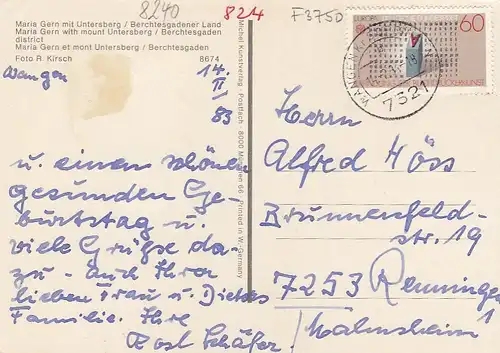 8240
824
F3750
Maria Gern mit Untersberg / Berchtesgadener Land
Maria Gern with mount Untersberg / Berchtesgaden
district
Maria Gern et mont Untersberg / Berchtesgaden
Foto R. Kirsch 8674
Wangen 14.
II
83
u. einen schönen
gesunden Ge-
burtstag u.
viele Grüße da-
zu - auch Ihrer
lieben Frau u. Dieters
Familie. Ihre
Rosl Schäfer
Michel Kunstverlag · Postfach · 8000 München 66 · Printed in W.-Germany
EUROPA
60
7321
Herrn
Alfred Höss
Brunnenfeld-
str. 19
7253 Renningen 1
Malmsheim